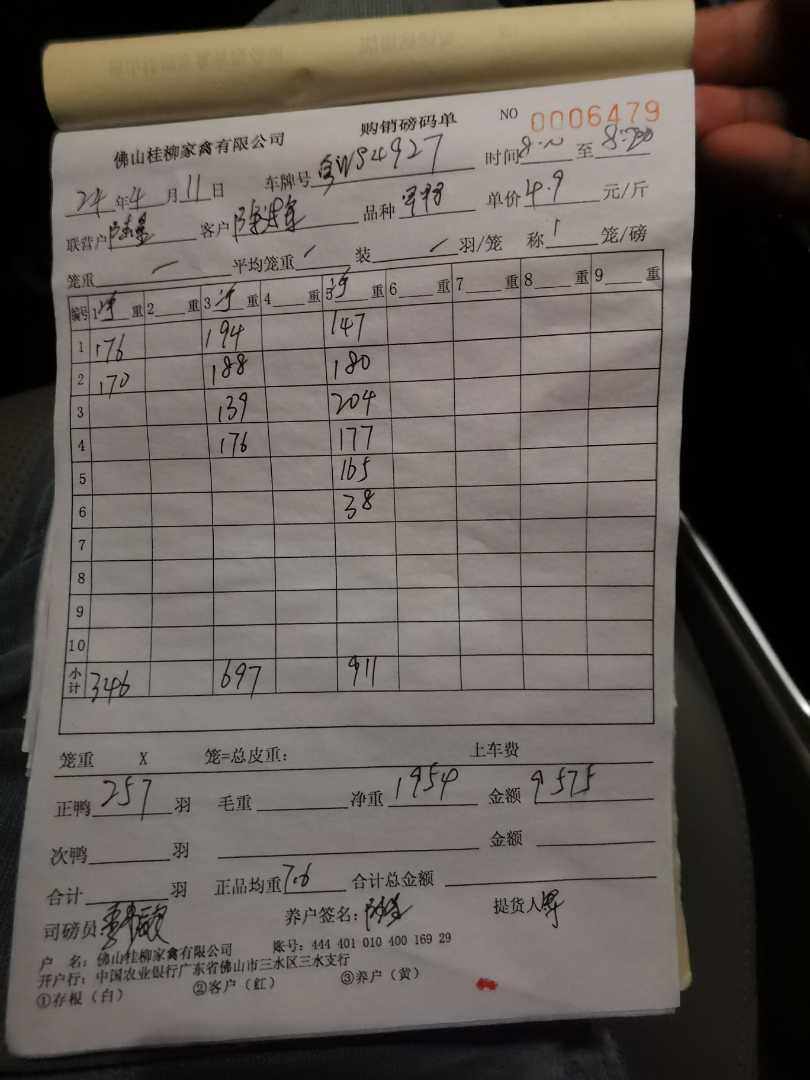 佛山桂柳家禽有限公司 购销磅码单 NO 0006479
24年4月11日 车牌号 粤WS4927 时间 8:20 至
联营户 客户 品种 单价4.9元/斤
笼重 / 平均笼重 / 装 / 羽/笼 称 1 笼/磅
编号 1净重 2重 3净重 4重 5净重 6重 7重 8重 9重
1 176 194 147
2 170 188 180
3 139 204
4 176 177
5 165
6 38
7
8
9
10
小计 346 697 911
笼重 X 笼=总皮重: 上车费
正鸭257羽 毛重 净重1954 金额9575
次鸭 羽 金额
合计 羽 正品均重7.6 合计总金额
司磅员 养户签名: 提货人
户 名: 佛山桂柳家禽有限公司 账号: 444 401 010 400 169 29
开户行: 中国农业银行广东省佛山市三水区三水支行
①存根(白) ②客户(红) ③养户(黄)